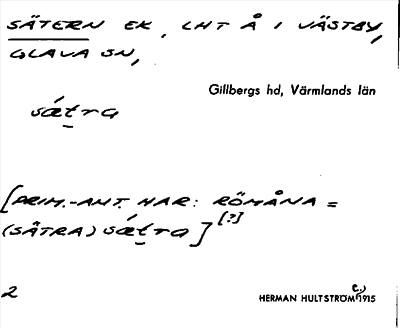 SÄTERN EK, LHT Å I VÄSTBY,
GLAVA SN,
Gillbergs hd, Värmlands län
sǽt̠ra
[PRIM.-ANT. HAR: RÖMÅNA =
(SÄTRA) sǽt̠ra] [?]
2
HERMAN HULTSTRÖM e.) 1915